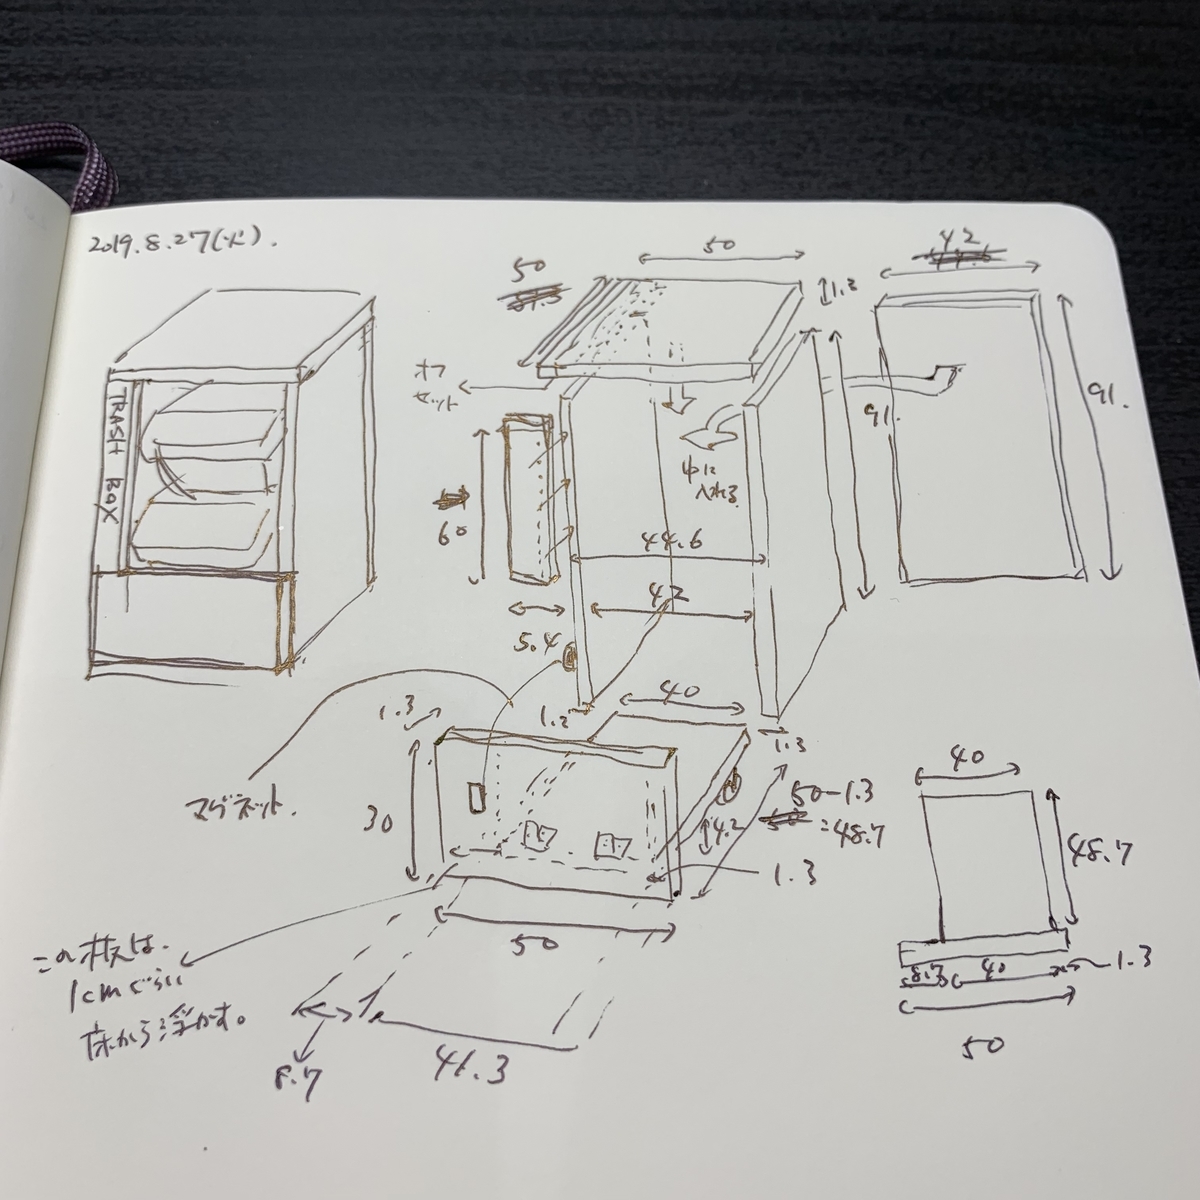 2019.8.27(火).
TRASH BOX
50
50
1.3
オフ
セット
中に
入れる
91.
42
91.
60
44.6
42
5.4
1.3
40
1.3
マグネット.
1.3
30
50-1.3
=48.7
4.2
1.3
50
この板は.
1cmぐらい
床から浮かす。
8.7
41.3
40
48.7
8.7
40
1.3
50